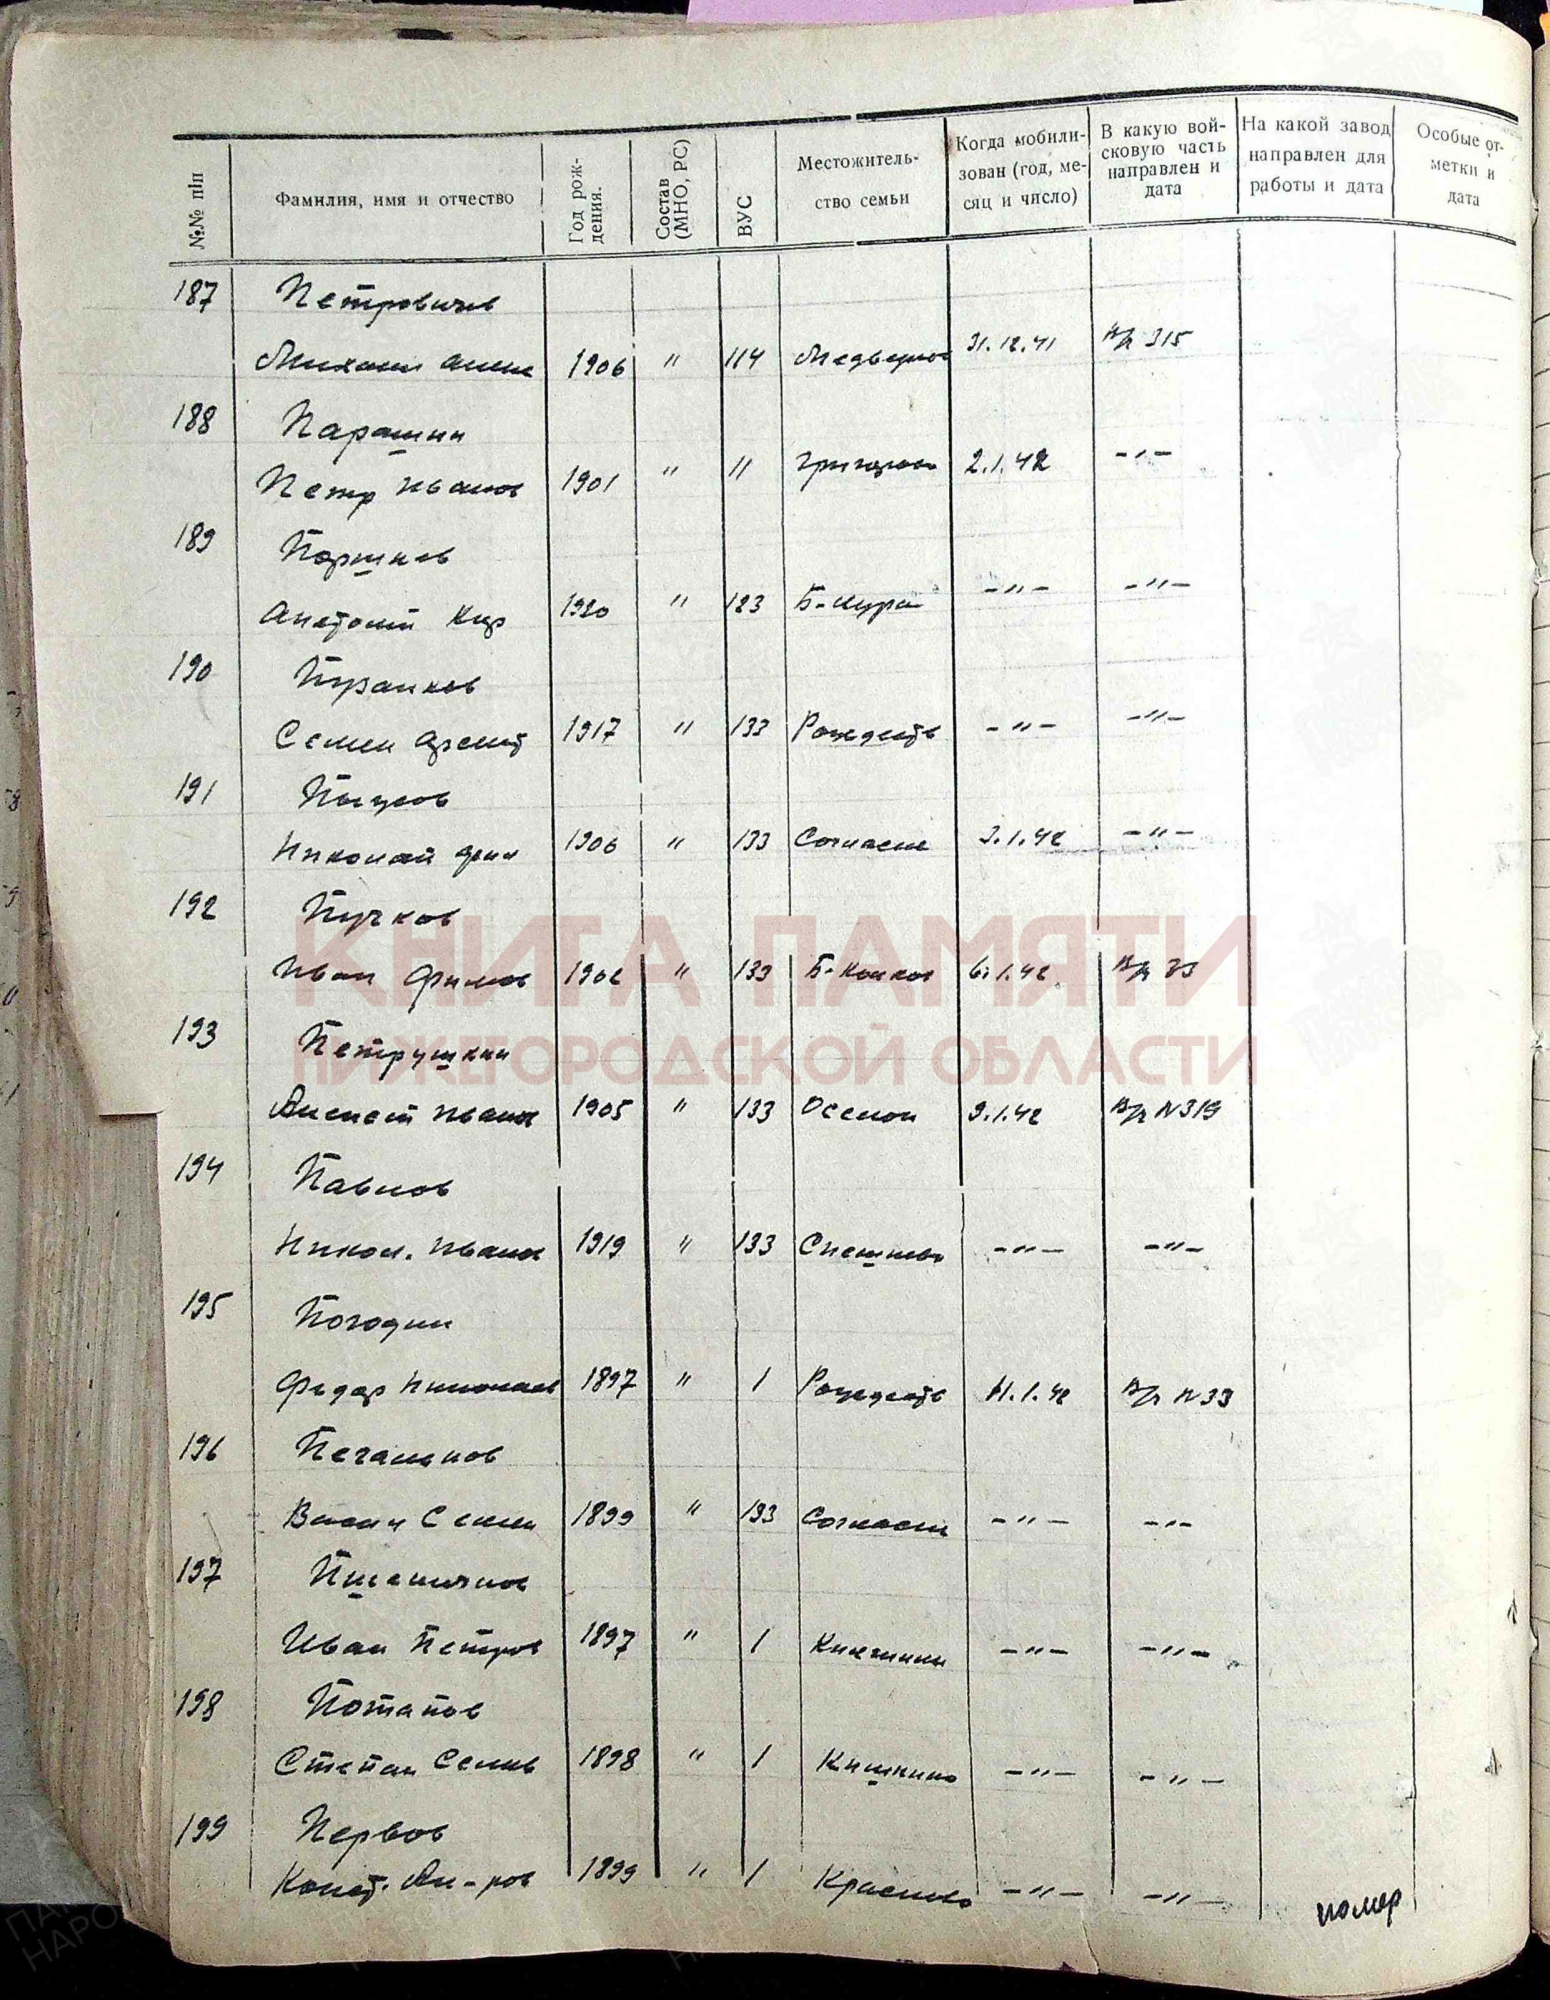 №№ п/п | Фамилия, имя и отчество | Год рождения. | Состав (МНО, РС) | ВУС | Местожительство семьи | Когда мобилизован (год, месяц и число) | В какую войсковую часть направлен и дата | На какой завод направлен для работы и дата | Особые отметки и дата
187 Петровичев
Михаил 1906 " 114 31.12.41 в/ч 315
188 Парашин
Петр Иванов 1901 " 11 2.1.42 -"-
189 Поршнев
Анатолий Кир 1920 " 123 -"- -"-
190 Пузанков
Семен 1917 " 133 Рождеств -"- -"-
191
Николай 1906 " 133 Согласие 3.1.42 -"-
192 Пучков
Иван Филипов " 133 6.1.42 в/ч 33
КНИГА ПАМЯТИ
НИЖЕГОРОДСКОЙ ОБЛАСТИ
193 Петрушкин
Алексей Иванов 1905 " 133 9.1.42 в/ч N 319
194 Павлов
Никол. Иванов 1919 " 133 -"- -"-
195 Погодин
Федор Николаев 1897 " 1 Рождеств 11.1.42 в/ч N 33
196 Печальнов
Васил Семен 1899 " 133 Согласие -"- -"-
197 Пшеничнов
Иван Петров 1897 " 1 Княгинин -"- -"-
198 Потапов
Степан Семив 1898 " 1 Кишкино -"- -"-
199 Первов
Конст. Ал-ров 1899 " 1 -"- -"- помер